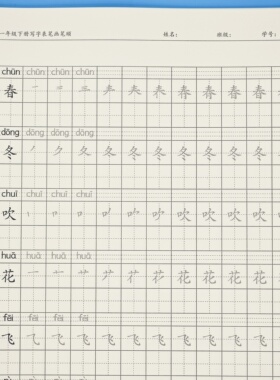 一年级下册写字表笔画笔顺 姓名： 班级： 学号：
chūn chūn chūn chūn
春 春 春 春 春 春
dōng dōng dōng dōng
冬 冬 冬 冬 冬 冬 冬 冬 冬
chuī chuī chuī chuī
吹 吹 吹 吹 吹 吹
huā huā huā huā
花 花 花 花 花 花
fēi fēi fēi fēi
飞 飞 飞 飞 飞 飞 飞 飞 飞 飞